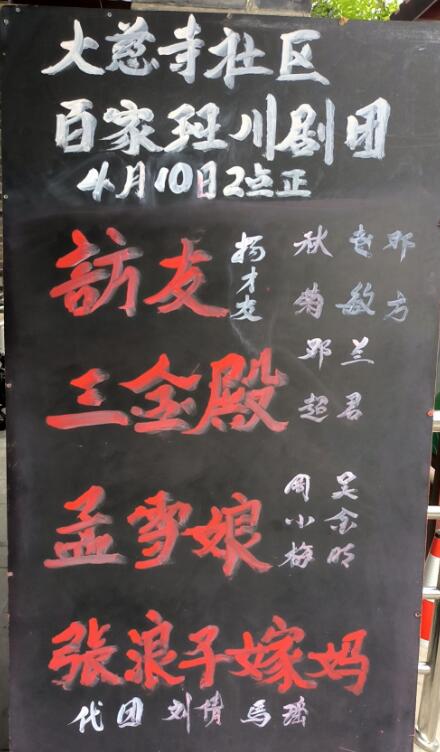 大慈寺社区
百家班川剧团
4月10日2点正
訪友
杨才友
秋菊
敏
邓方
三金殿
邓超
兰君
孟雪娘
周小梅
吴金明
张浪子嫁妈
代团 刘倩 馬瑶